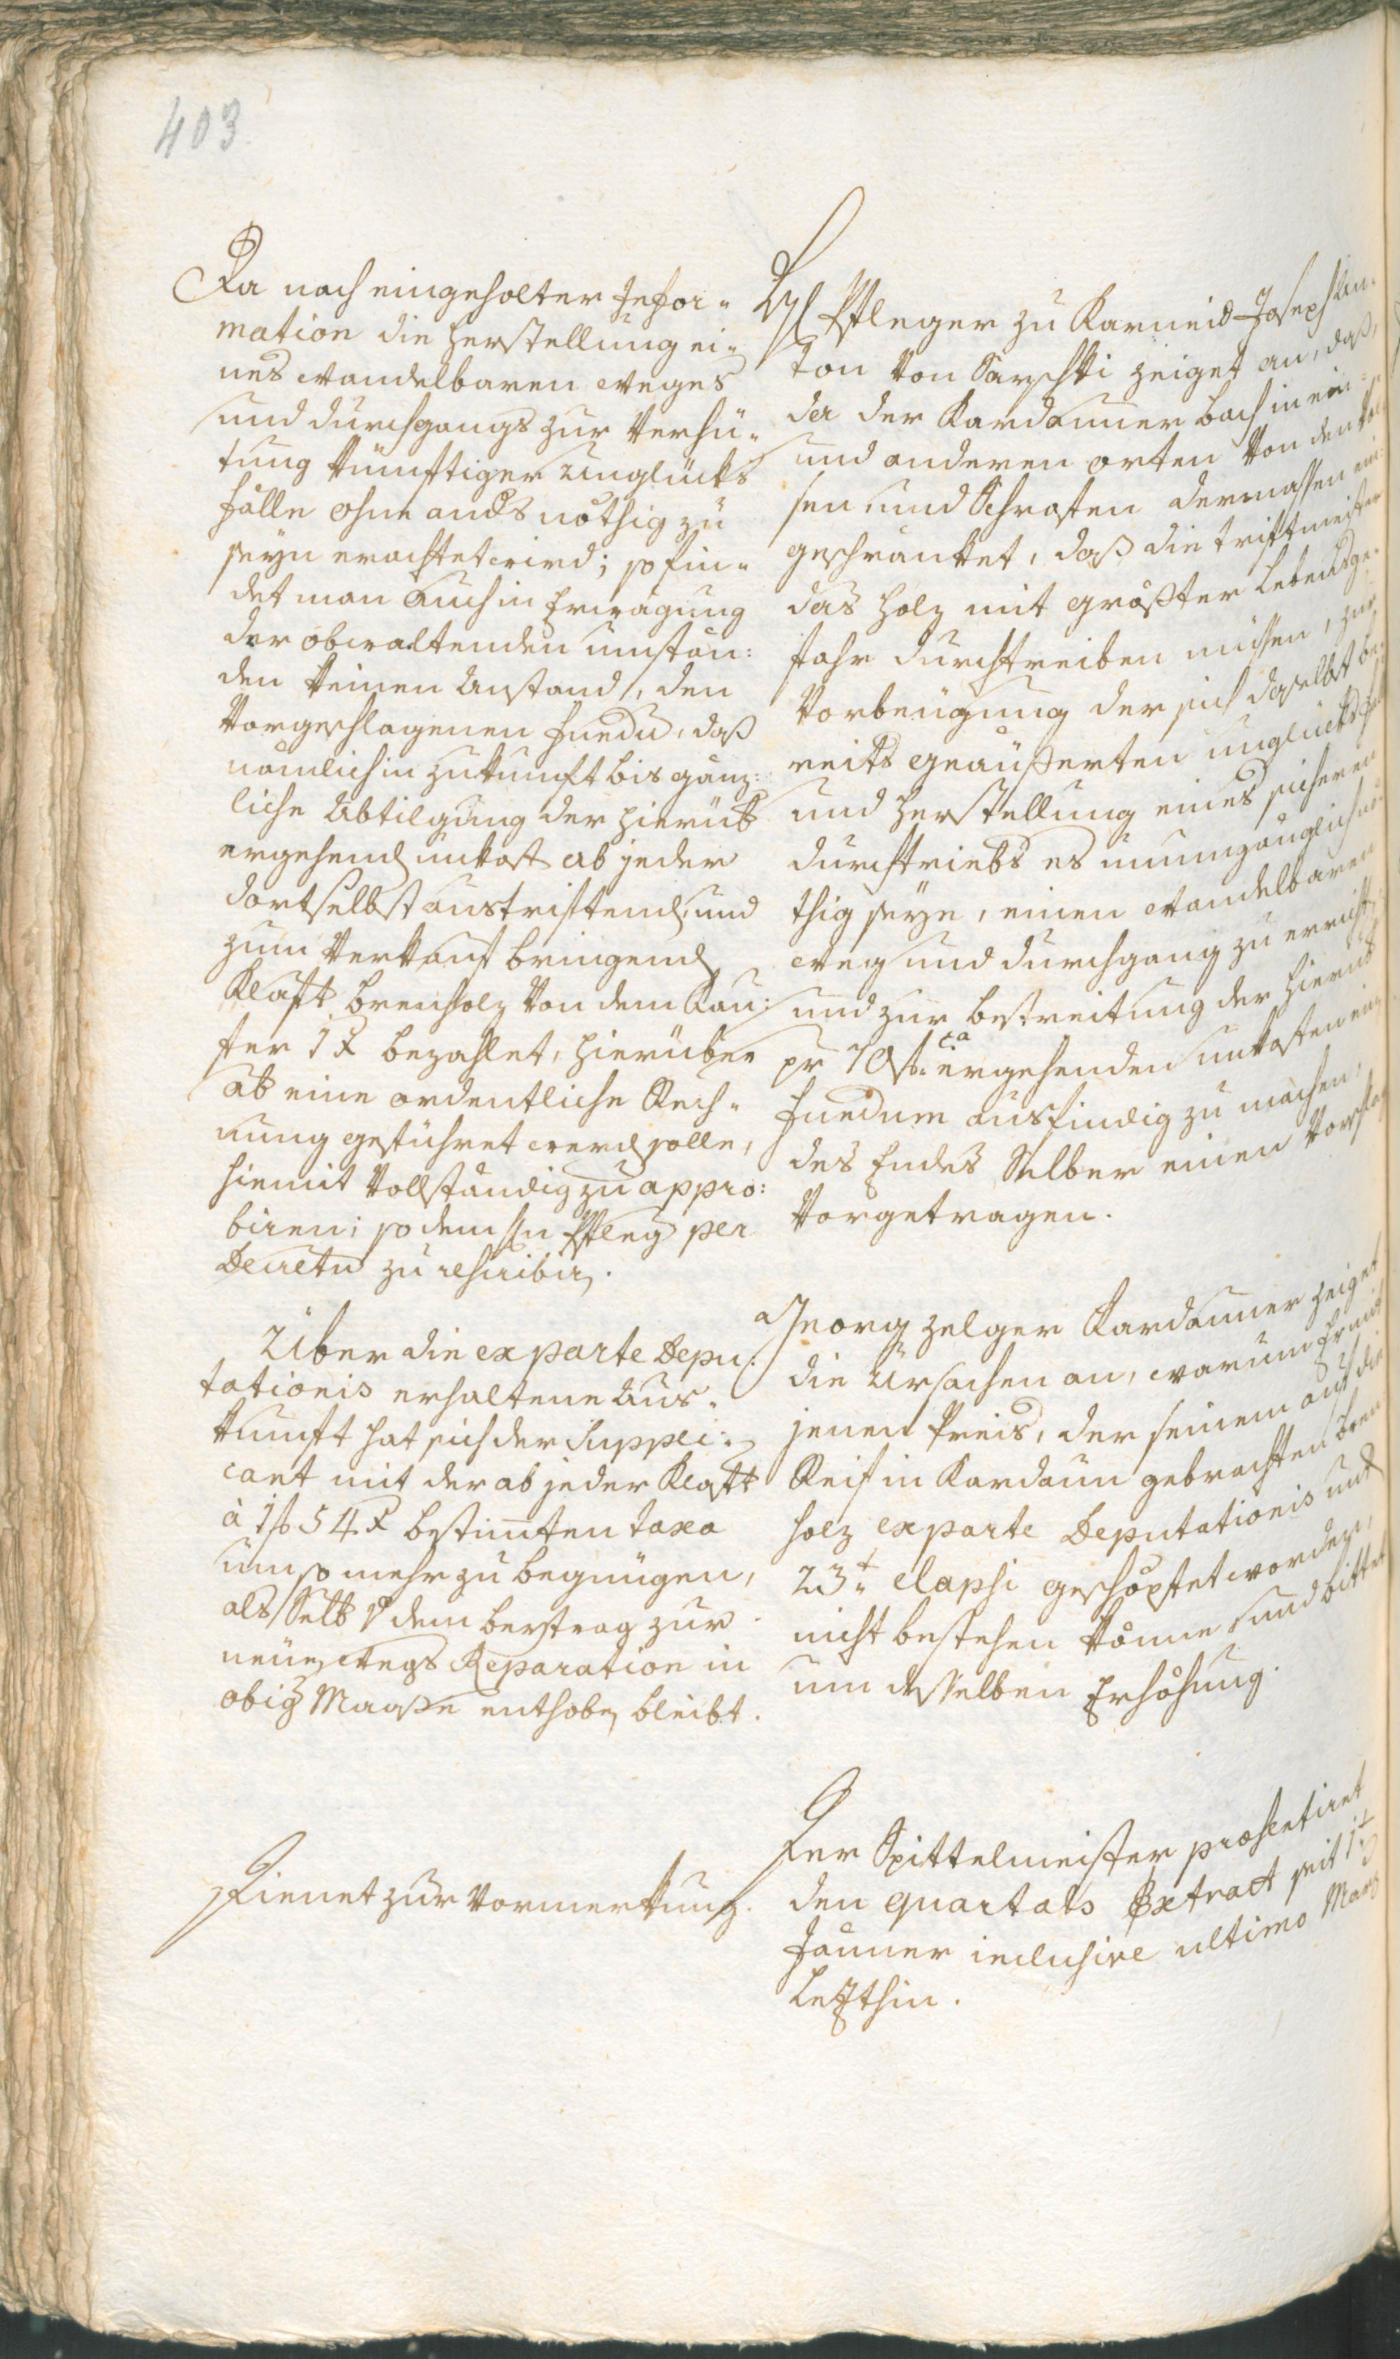 403
Da nach eingeholter Infor-
mation die Herstellung ei-
nes wandelbaren Weeges
und durchgangs zur Verhü-
tung künftiger Unglücks
fälle ohne anders nöthig zu
seyn erachtet wird; so fin-
det man auch in Erwägung
der obwaltenden umstän:
den keinen Anstand, den
Vorgeschlagenen Fundu, daß
nämlich in zukunft bis gänz:
liche Abtilgung der hierüb
ergehend unkost ab jeder
dortselbst austriftend, und
zum Verkauf bringend
Klaft brenholz von dem Kau:
fer 1 x bezahlet, hierüber
ab eine ordentliche Rech-
nung geführet werd solle,
hiemit Vollständig zu appro:
biren; so dem Hn Pfleg per
Decretu zu rescribir.
Über die ex parte Depu:
tationis erhaltene Aus-
kunft hat sich der Suppli:
cant mit der ab jeder Klaft
à 1 f 54 x bestimten taxa
um so mehr zu begnügen,
als Selb dem beytrag zur
neuen Weegs Reparation in
obig Maaße enthoben bleibt.
Dienet zur Vormerkung.
H Pfleger zu Karneid Joseph An-
ton von Sarschki zeiget an, daß,
da der Kardauner bach in ein
und anderen orten von den
sen und Schrofen dermassen ein
geschränket, daß die triftmeister
das holz mit größter Lebensge-
fahr durchtreiben müssen, zur
Vorbeugung der sich daselbst be
reits geäußerten unglücksfäll
und herstellung eines sicheren
durchtriebs es unumgänglich nö
thig seye, einen wandelbaren
Weeg und durchgang zu erricht,
und zur bestreitung der hierüb
pr 70 f ca ergehenden unkosten ein
Fundum ausfindig zu machen,
des Endes Selber einen Vorschlag
Vorgetragen.
Georg Zelger Kardauner zeiget
die Ursachen an, warum Er mit
jenem Preis, der seinem auf die
Reif in Kardaun gebrachten bren
holz ex parte Deputationis unt
23t elapsi geschöpfet worden,
nicht bestehen könne, und bittet
um desselben Erhöhung.
Der Spittelmeister præsentiret
den quartals Extract seit 1t
Jänner inclusive ultimo Marz
Letzthin.